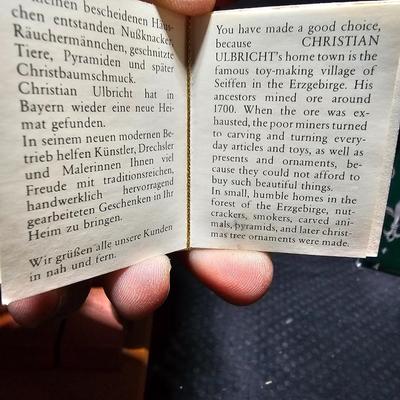 kleinen bescheidenen Häus-
chen entstanden Nußknacker,
Räuchermännchen, geschnitzte
Tiere, Pyramiden und später
Christbaumschmuck.
Christian Ulbricht hat in
Bayern wieder eine neue Hei-
mat gefunden.
In seinem neuen modernen Be-
trieb helfen Künstler, Drechsler
und Malerinnen Ihnen viel
Freude mit traditionsreichen,
handwerklich hervorragend
gearbeiteten Geschenken in Ihr
Heim zu bringen.
Wir grüßen alle unsere Kunden
in nah und fern.
You have made a good choice,
because CHRISTIAN
ULBRICHT's home town is the
famous toy-making village of
Seiffen in the Erzgebirge. His
ancestors mined ore around
1700. When the ore was ex-
hausted, the poor miners turned
to carving and turning every-
day articles and toys, as well as
presents and ornaments, be-
cause they could not afford to
buy such beautiful things.
In small, humble homes in the
forest of the Erzgebirge, nut-
crackers, smokers, carved ani-
mals, pyramids, and later christ-
mas tree ornaments were made.